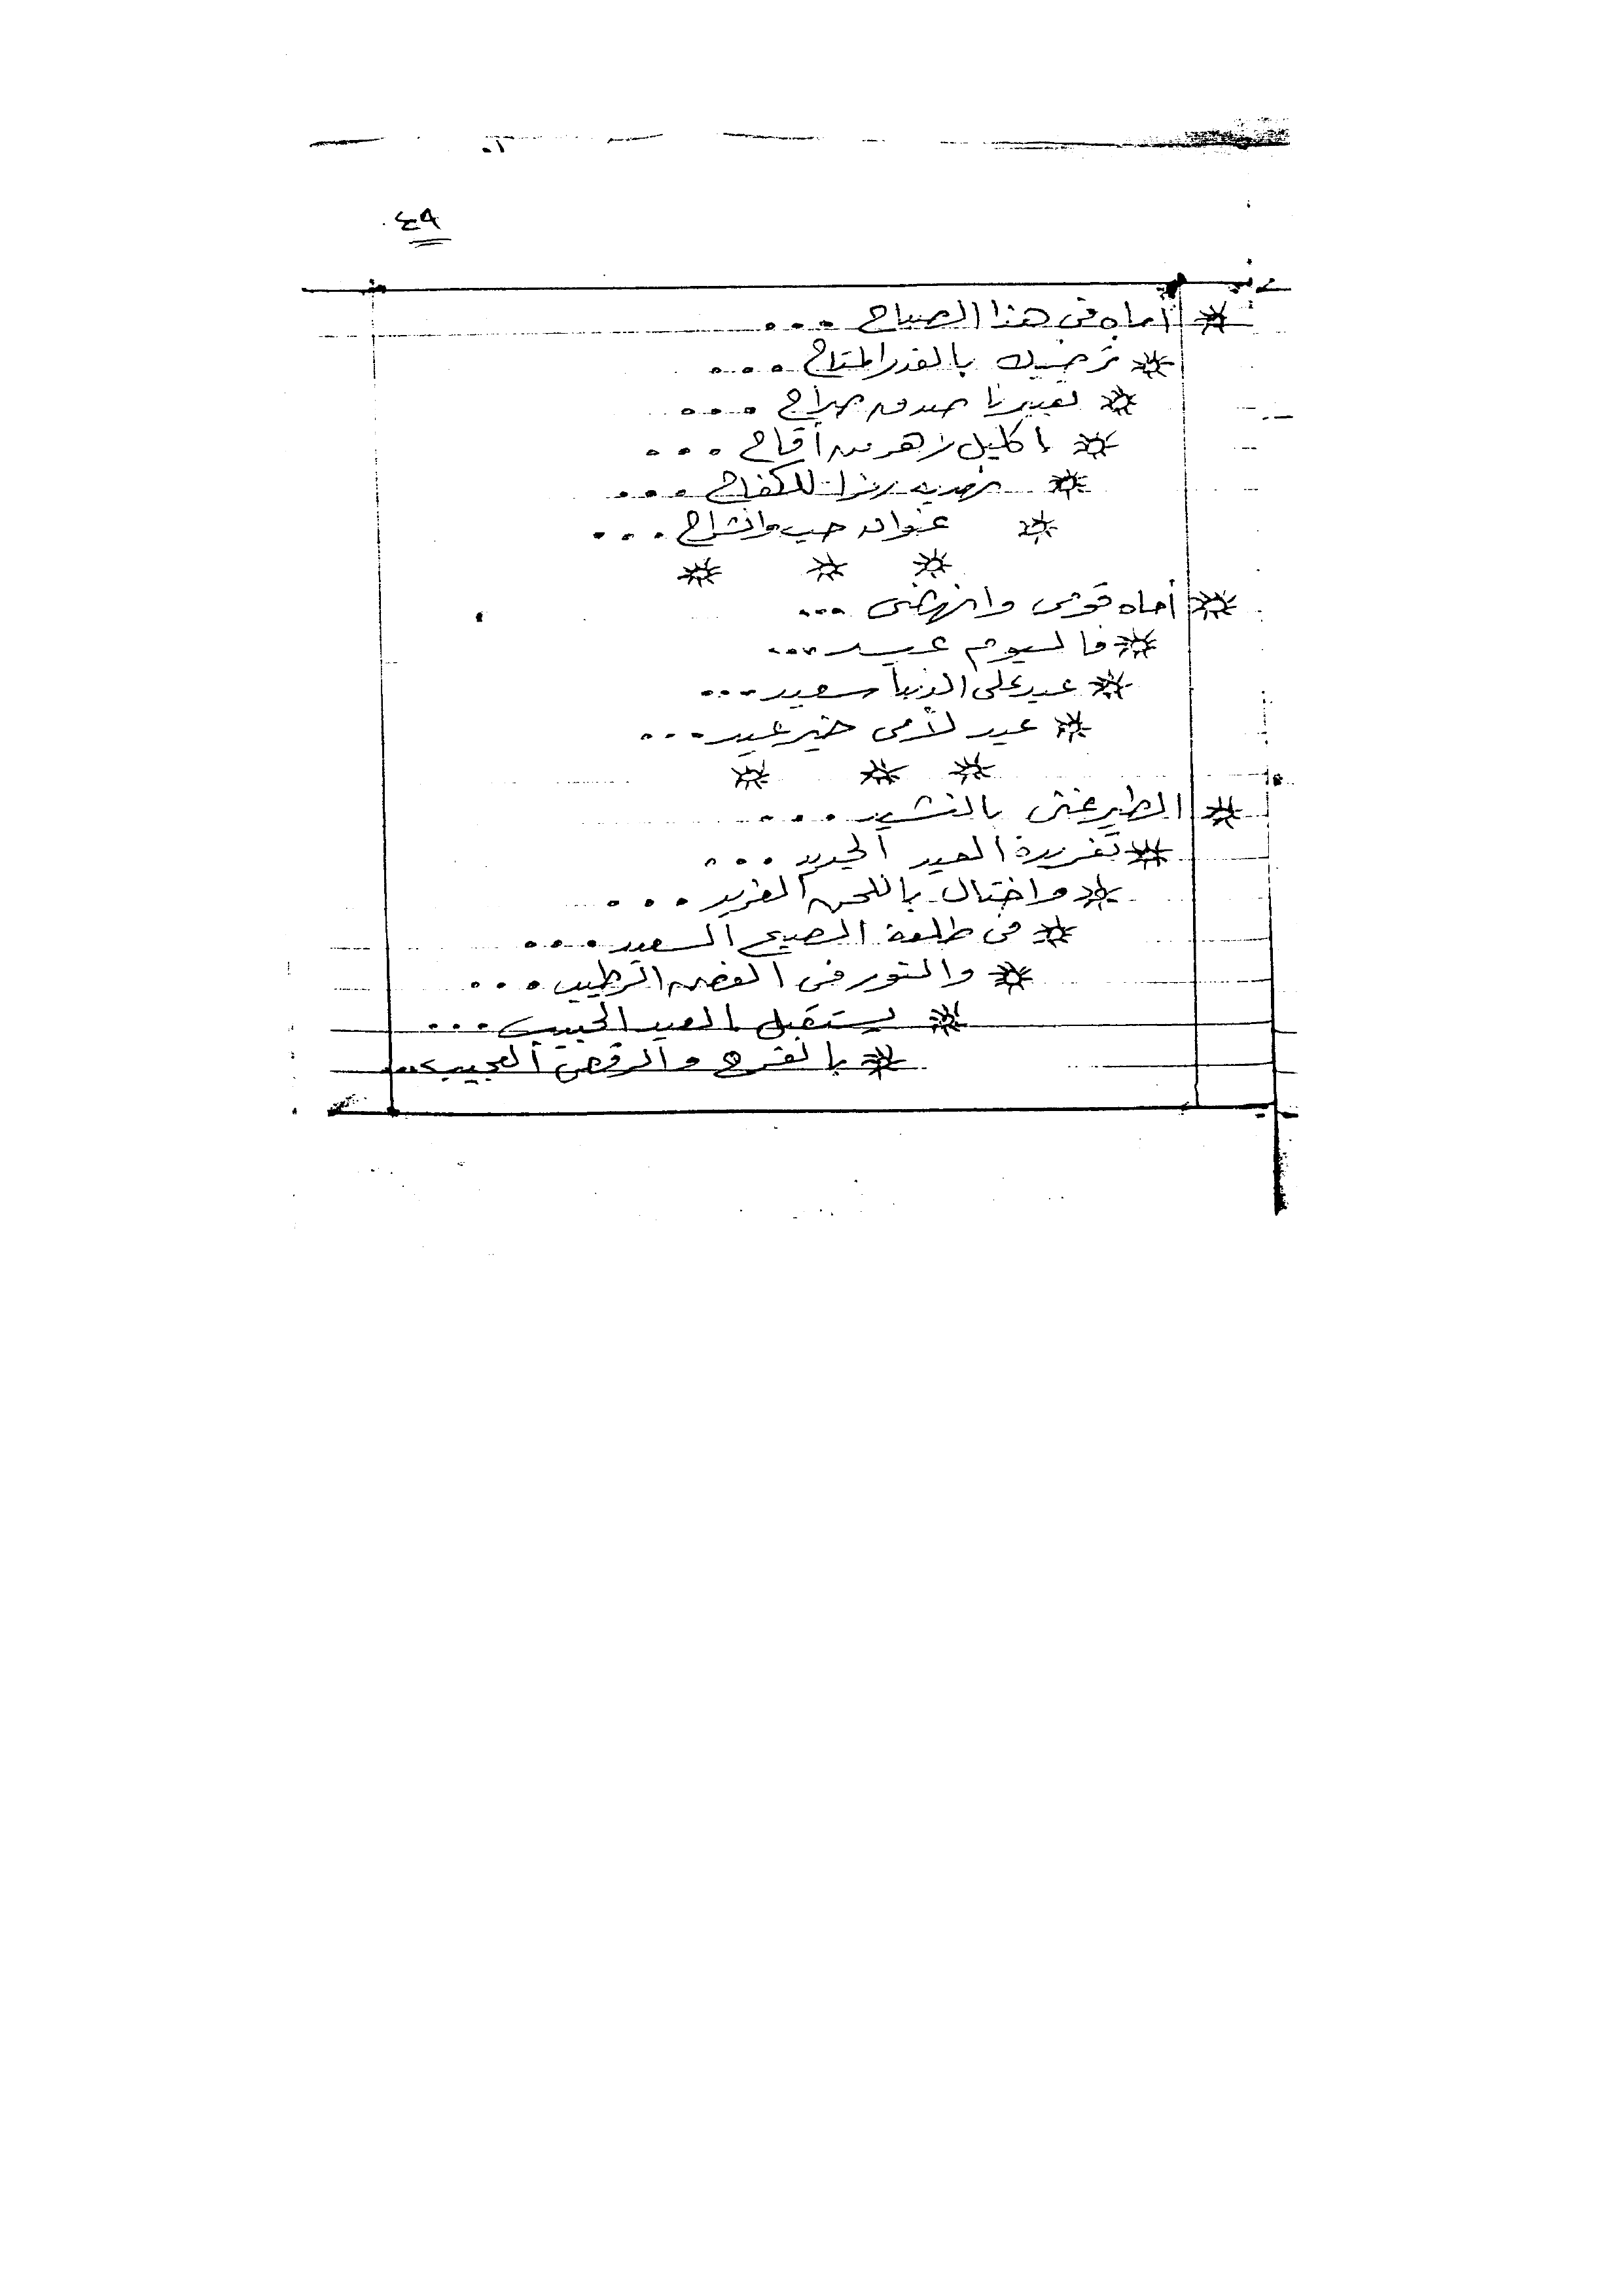 ٤٩
أماه في هذا الصباح ...
نرضيك بالقدر المتاح ...
تعبيرنا صدق صراح ...
إكليل زهر من أقاح ...
نهديه رمزا للكفاح ...
عنوان حب وانشراح ...
أماه قومي وانهضي ...
فاليوم عيد ...
عيد على الدنيا سعيد ...
عيد لأمي خير عيد ...
الطير غنى بالنشيد ...
تغريدة العيد الجديد ...
واختال باللحن الفريد ...
في طلعة الصبح السعيد ...
والنور في الغصن الرطيب ...
يستقبل العيد الحبيب ...
بالفرح والرقص العجيب ...